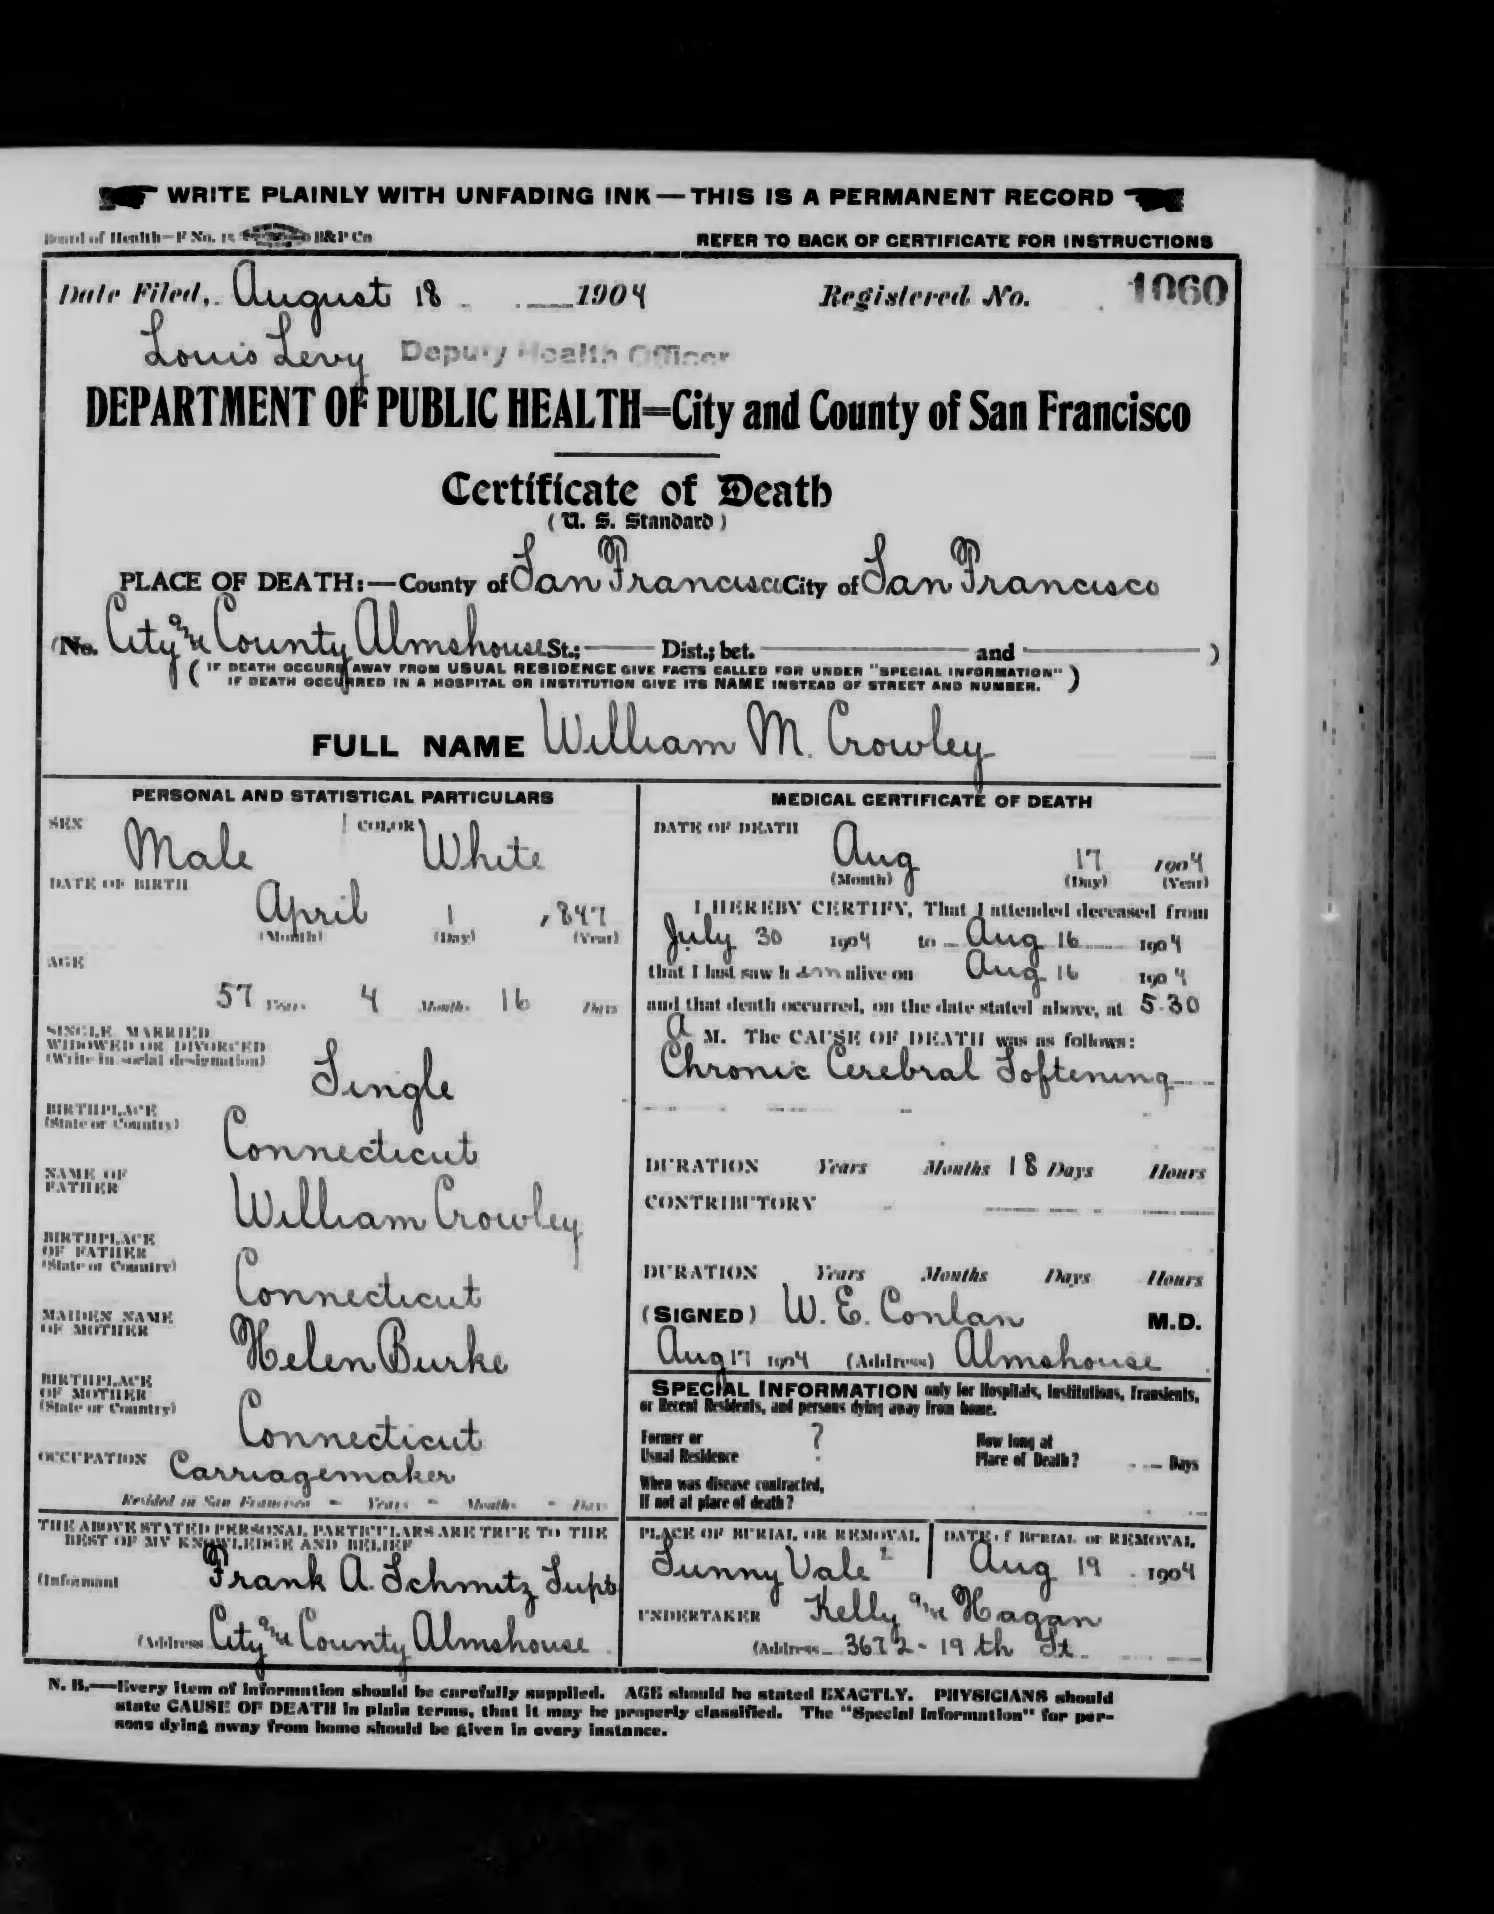 WRITE PLAINLY WITH UNFADING INK—THIS IS A PERMANENT RECORD
Board of Health—F No. 15 B&P Co
REFER TO BACK OF CERTIFICATE FOR INSTRUCTIONS
Date Filed, August 18 1904 Registered No. 1060
Louis Levy Deputy Health Officer
DEPARTMENT OF PUBLIC HEALTH=City and County of San Francisco
Certificate of Death
(U. S. Standard)
PLACE OF DEATH:—County of San Francisco City of San Francisco
(No. City and County Almshouse St.; Dist.; bet. and )
(IF DEATH OCCURS AWAY FROM USUAL RESIDENCE GIVE FACTS CALLED FOR UNDER "SPECIAL INFORMATION"
IF DEATH OCCURRED IN A HOSPITAL OR INSTITUTION GIVE ITS NAME INSTEAD OF STREET AND NUMBER.)
FULL NAME William M. Crowley
PERSONAL AND STATISTICAL PARTICULARS
SEX Male COLOR White
DATE OF BIRTH
April 1 , 847
(Month) (Day) (Year)
AGE
57 Years 4 Months 16 Days
SINGLE, MARRIED,
WIDOWED OR DIVORCED
(Write in social designation)
Single
BIRTHPLACE
(State or Country)
Connecticut
NAME OF
FATHER
William Crowley
BIRTHPLACE
OF FATHER
(State or Country)
Connecticut
MAIDEN NAME
OF MOTHER
Helen Burke
BIRTHPLACE
OF MOTHER
(State or Country)
Connecticut
OCCUPATION Carriagemaker
Resided in San Francisco - Years - Months - Days
THE ABOVE STATED PERSONAL PARTICULARS ARE TRUE TO THE
BEST OF MY KNOWLEDGE AND BELIEF
(Informant Frank A. Schmitz Supt
(Address City and County Almshouse
MEDICAL CERTIFICATE OF DEATH
DATE OF DEATH
Aug 17 1904
(Month) (Day) (Year)
I HEREBY CERTIFY, That I attended deceased from
July 30 1904 to Aug 16 1904
that I last saw h im alive on Aug 16 1904
and that death occurred, on the date stated above, at 5.30
A M. The CAUSE OF DEATH was as follows:
Chronic Cerebral Softening
DURATION Years Months 18 Days Hours
CONTRIBUTORY
DURATION Years Months Days Hours
(SIGNED) W. E. Conlan M.D.
Aug 17 1904 (Address) Almshouse
SPECIAL INFORMATION only for Hospitals, Institutions, Transients,
or Recent Residents, and persons dying away from home.
Former or
Usual Residence ?
How long at
Place of Death? Days
When was disease contracted,
If not at place of death?
PLACE OF BURIAL OR REMOVAL
Sunny Vale
DATE of BURIAL or REMOVAL
Aug 19 1904
UNDERTAKER Kelly and Hagan
(Address 3672 - 19th St.
N. B.—Every item of information should be carefully supplied. AGE should be stated EXACTLY. PHYSICIANS should
state CAUSE OF DEATH in plain terms, that it may be properly classified. The "Special Information" for per-
sons dying away from home should be given in every instance.